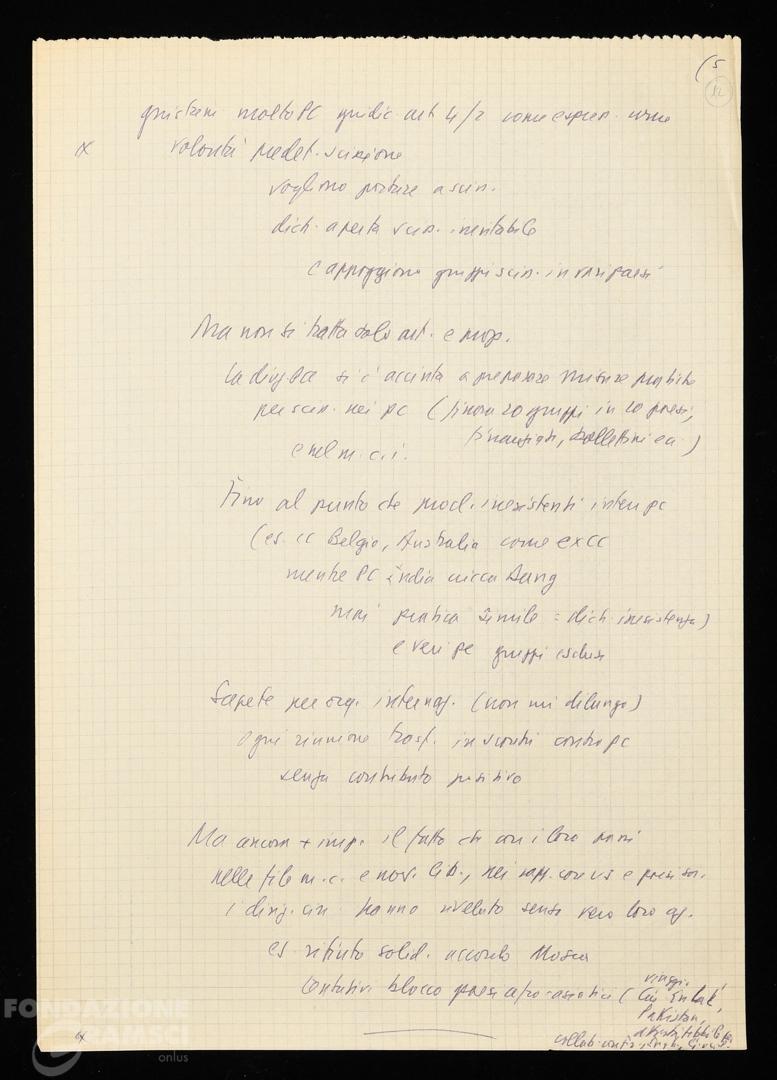 (5
12
molto PC giudic. art 4/2 come espress.
x volontà predet. scissione
vogliono portare a sciss.
dich. aperta sciss. inevitabile
e appoggiano gruppi sciss. in vari paesi
Ma non si tratta solo art. e prop.
La dirig. si è accinta a preparare misure pratiche
per sciss. nei pc (finora 20 gruppi in 20 paesi,
finanziati, bollettini ecc)
e nel m.c.i.
Fino al punto che procl. inesistenti interi pc
(es. cc Belgio, Australia come ex CC
mentre PC India cricca Dang
mai pratica simile = dich. inesistenza)
e veri pc gruppi esclusi
Sapete per org. internaz. (non mi dilungo)
ogni riunione trasf. in scontri contro pc
senza contributo positivo
Ma ancora + imp. il fatto che con i loro passi
nelle file m.c. e mov. lib., nei rapp. con us e paesi soc.
i dirig. cin. hanno rivelato senso vero loro az.
es. rifiuto solid. accordo Mosca
tentativi blocco paesi afro-asiatici (viaggi
Ciu En Lai,
Pakistan,
collab. contr.
x
FONDAZIONE
GRAMSCI
onlus